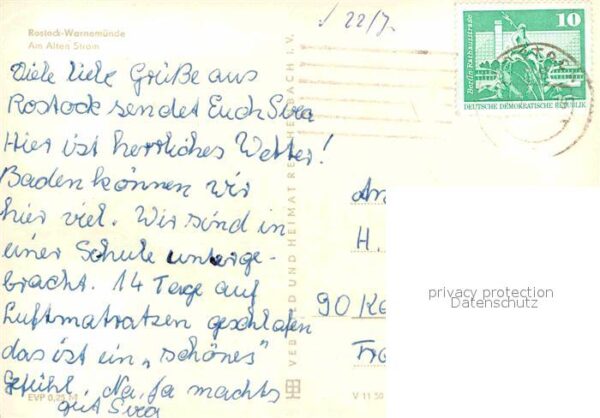 Rostock-Warnemünde
Am Alten Strom
22/7.
Viele liebe Grüße aus
Rostock sendet Euch Sira
Hier ist herrliches Wetter!
Baden können wir
hier viel. Wir sind in
einer Schule unterge-
bracht. 14 Tage auf
Luftmatratzen geschlafen
das ist ein „schönes"
Gefühl. Na, ja machts
gut Sira
EVP 0,25 M
VEB BILD UND HEIMAT REICHENBACH I. V.
V 11 50
10
Berlin, Rathausstraße
DEUTSCHE DEMOKRATISCHE REPUBLIK
H.
90
privacy protection
Datenschutz